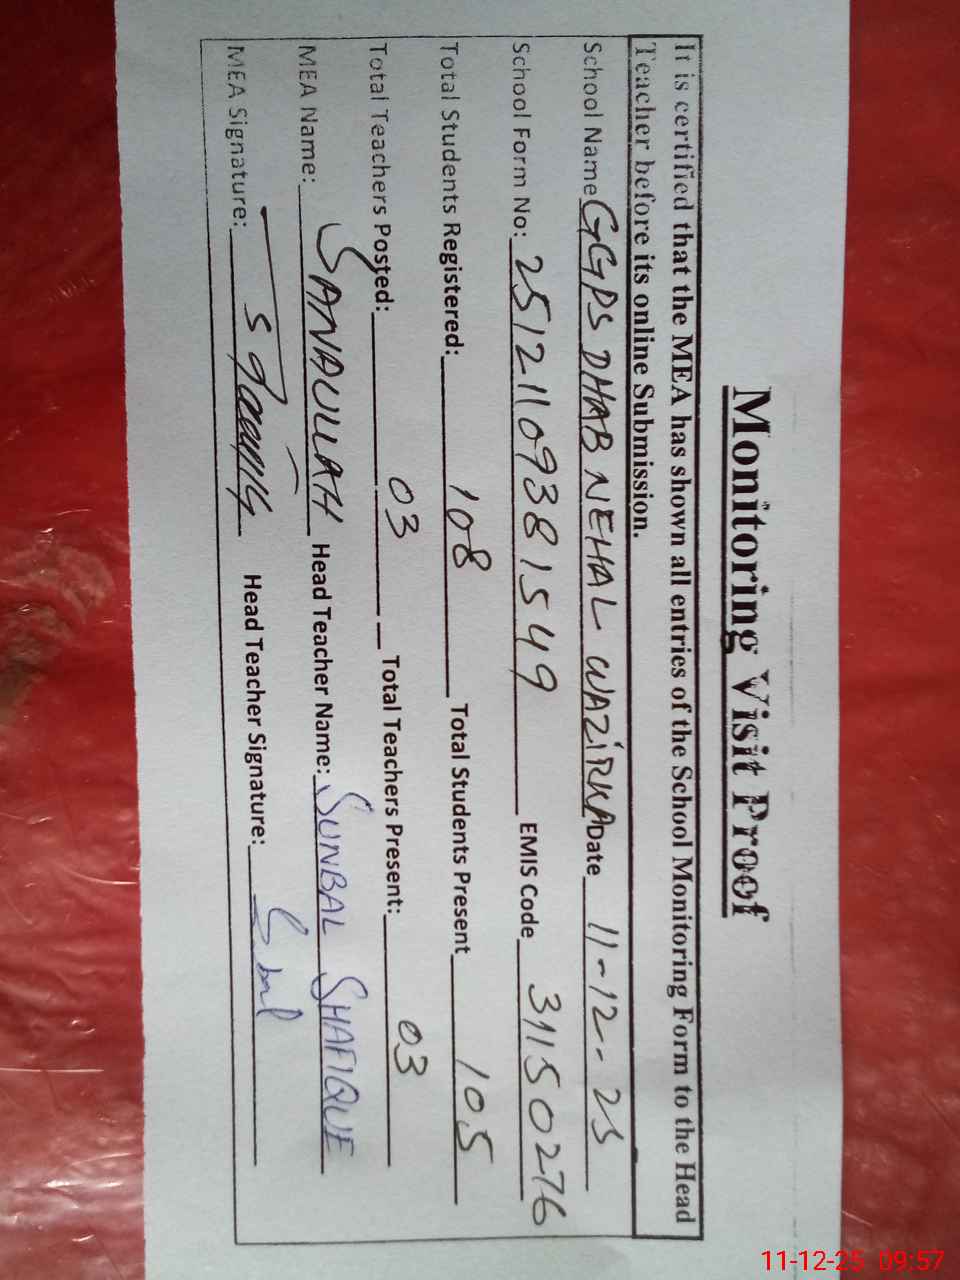 Monitoring Visit Proof
It is certified that the MEA has shown all entries of the School Monitoring Form to the Head
Teacher before its online Submission.
School Name GGPS DHAB NEHAL WAZIRKA Date 11-12-25
School Form No: 25121109381549 EMIS Code 31150276
Total Students Registered: 108 Total Students Present 105
Total Teachers Posted: 03 Total Teachers Present: 03
MEA Name: SANAULLAH Head Teacher Name: SUNBAL SHAFIQUE
MEA Signature: Head Teacher Signature:
11-12-25 09:57